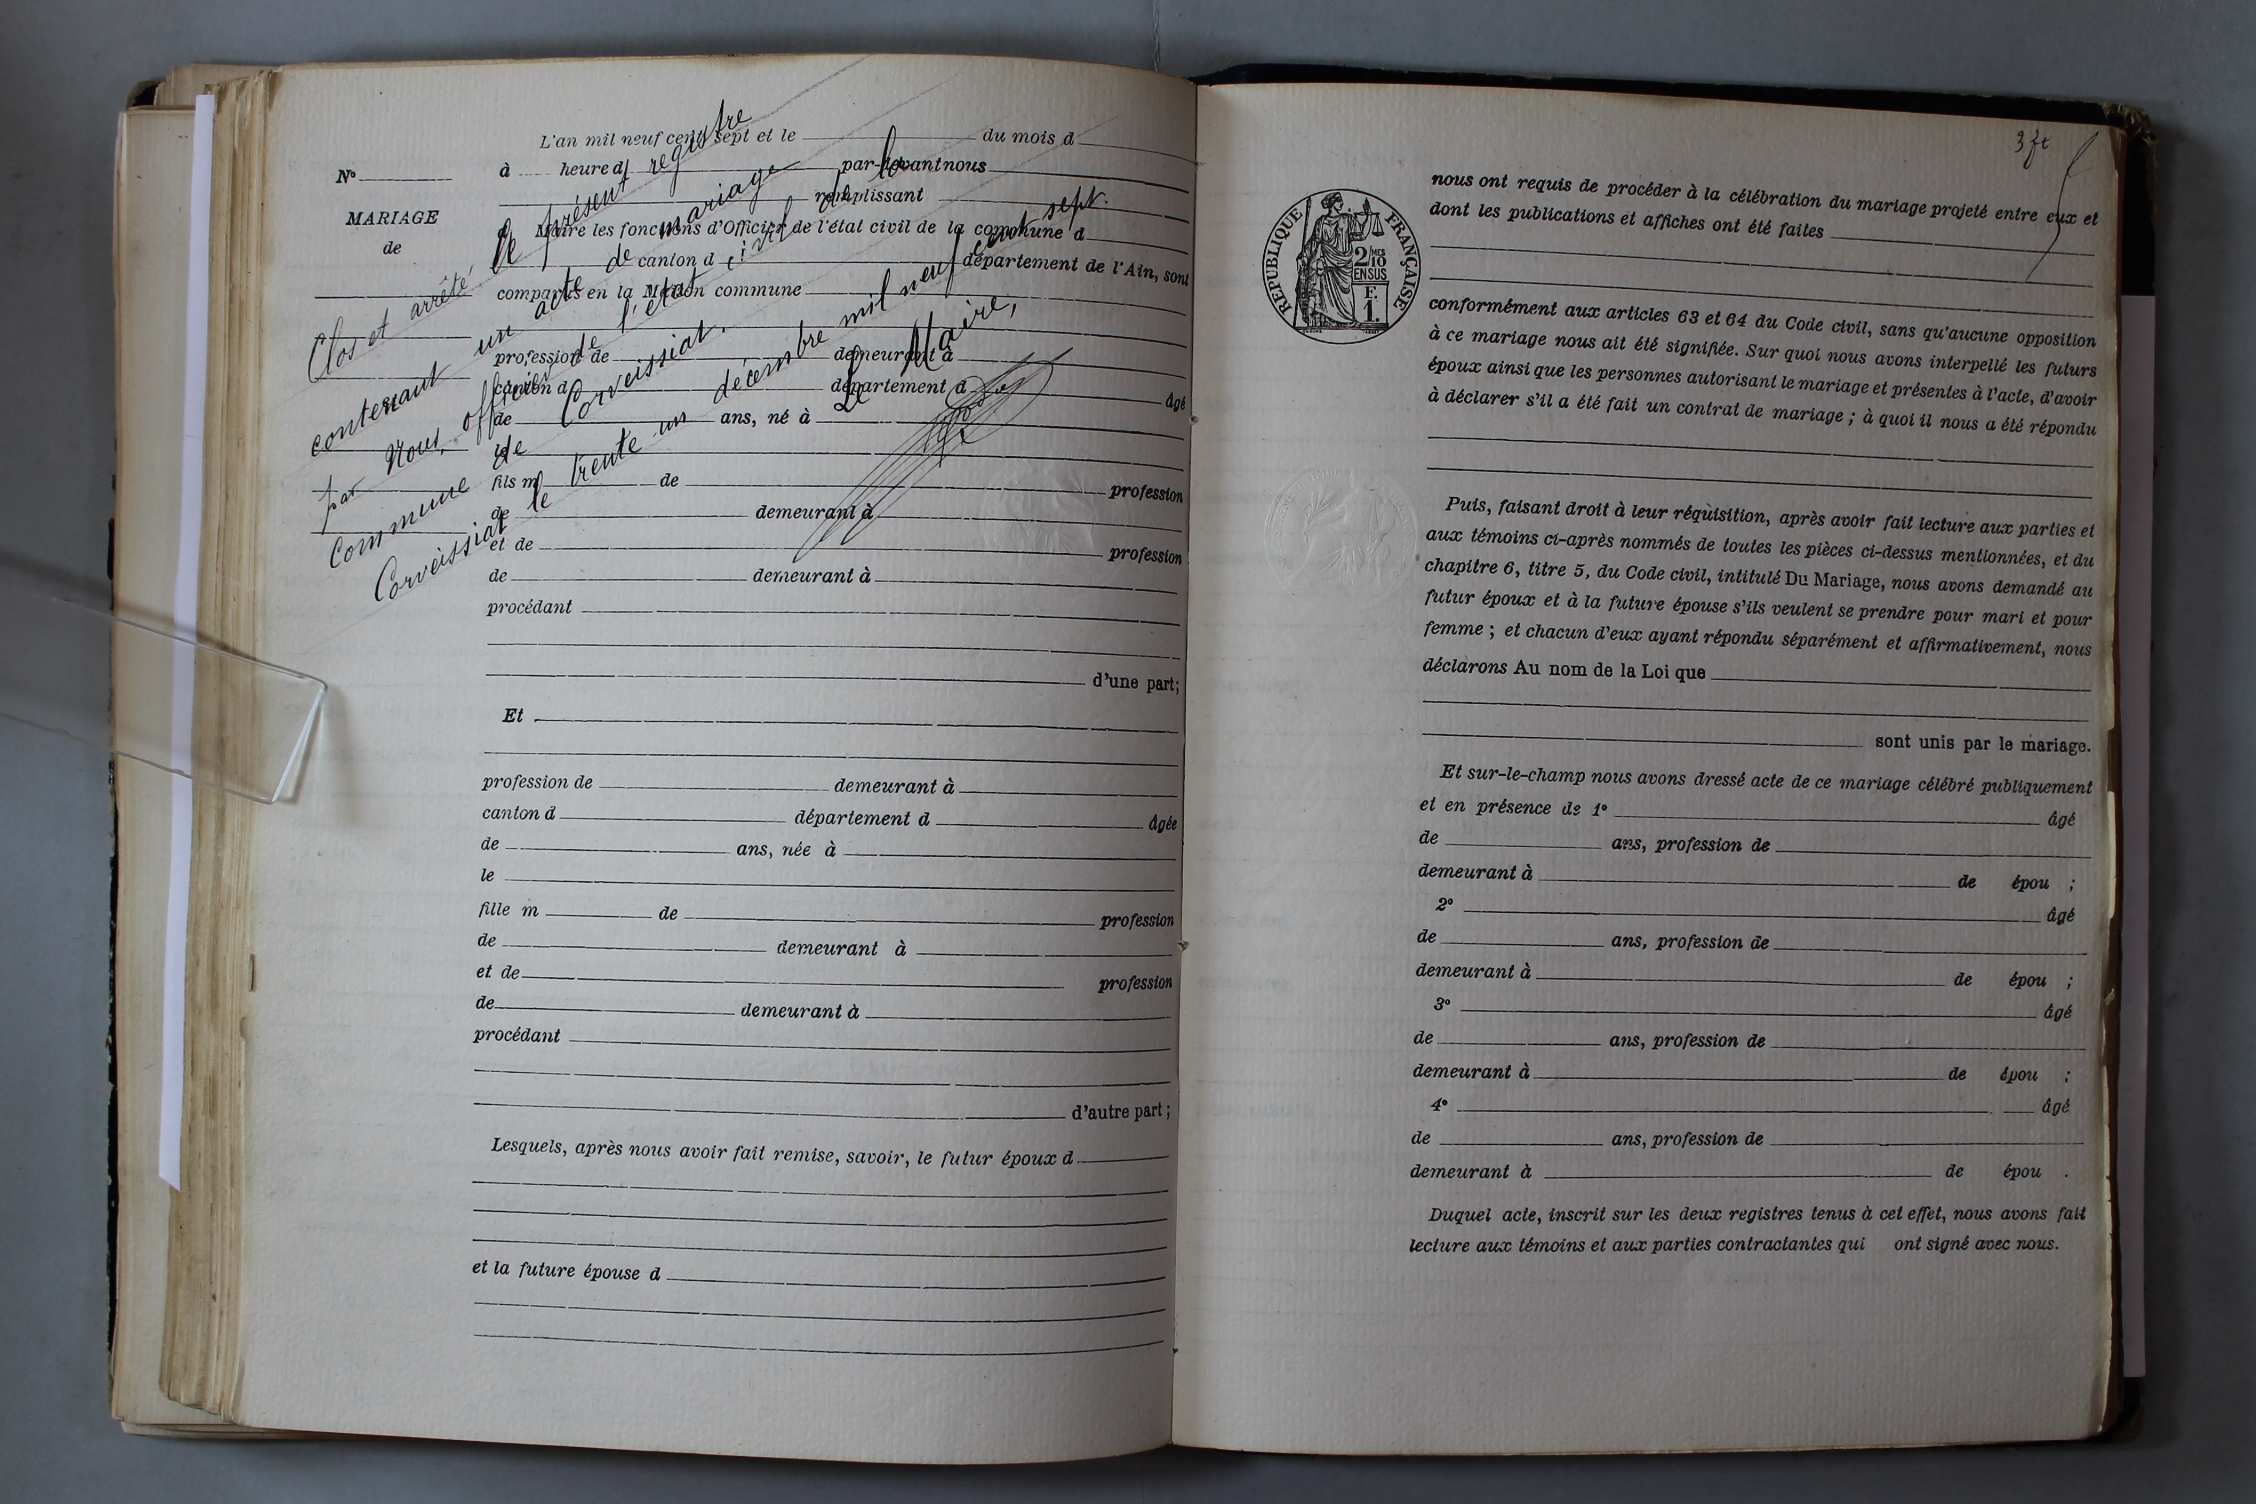 L'an mil neuf cent sept et le du mois d
à heure d par-devant nous
remplissant
à Maire les fonctions d'Officier de l'état civil de la commune d
canton d département de l'Ain, sont
comparus en la Maison commune
profession de demeurant à
canton d département d âgé
de ans, né à
le
fils m de profession
de demeurant à
et de profession
de demeurant à
procédant
d'une part;
Et
profession de demeurant à
canton d département d âgée
de ans, née à
le
fille m de profession
de demeurant à
et de profession
de demeurant à
procédant
d'autre part ;
Lesquels, après nous avoir fait remise, savoir, le futur époux d
et la future épouse d
N°
MARIAGE
de
Clos et arrêté le présent registre
contenant un acte de mariage
par Nous, officier de l'état civil de la
Commune de Corveissiat.
Corveissiat le trente un décembre mil neuf cent sept.
Le Maire,
3 ft
RÉPUBLIQUE FRANÇAISE
2/10 MES
EN SUS
F.
1.
nous ont requis de procéder à la célébration du mariage projeté entre eux et
dont les publications et affiches ont été faites
conformément aux articles 63 et 64 du Code civil, sans qu'aucune opposition
à ce mariage nous ait été signifiée. Sur quoi nous avons interpellé les futurs
époux ainsi que les personnes autorisant le mariage et présentes à l'acte, d'avoir
à déclarer s'il a été fait un contrat de mariage ; à quoi il nous a été répondu
Puis, faisant droit à leur réquisition, après avoir fait lecture aux parties et
aux témoins ci-après nommés de toutes les pièces ci-dessus mentionnées, et du
chapitre 6, titre 5, du Code civil, intitulé Du Mariage, nous avons demandé au
futur époux et à la future épouse s'ils veulent se prendre pour mari et pour
femme ; et chacun d'eux ayant répondu séparément et affirmativement, nous
déclarons Au nom de la Loi que
sont unis par le mariage.
Et sur-le-champ nous avons dressé acte de ce mariage célébré publiquement
et en présence de 1° âgé
de ans, profession de
demeurant à de épou ;
2° âgé
de ans, profession de
demeurant à de épou ;
3° âgé
de ans, profession de
demeurant à de épou ;
4° âgé
de ans, profession de
demeurant à de épou .
Duquel acte, inscrit sur les deux registres tenus à cet effet, nous avons fait
lecture aux témoins et aux parties contractantes qui ont signé avec nous.